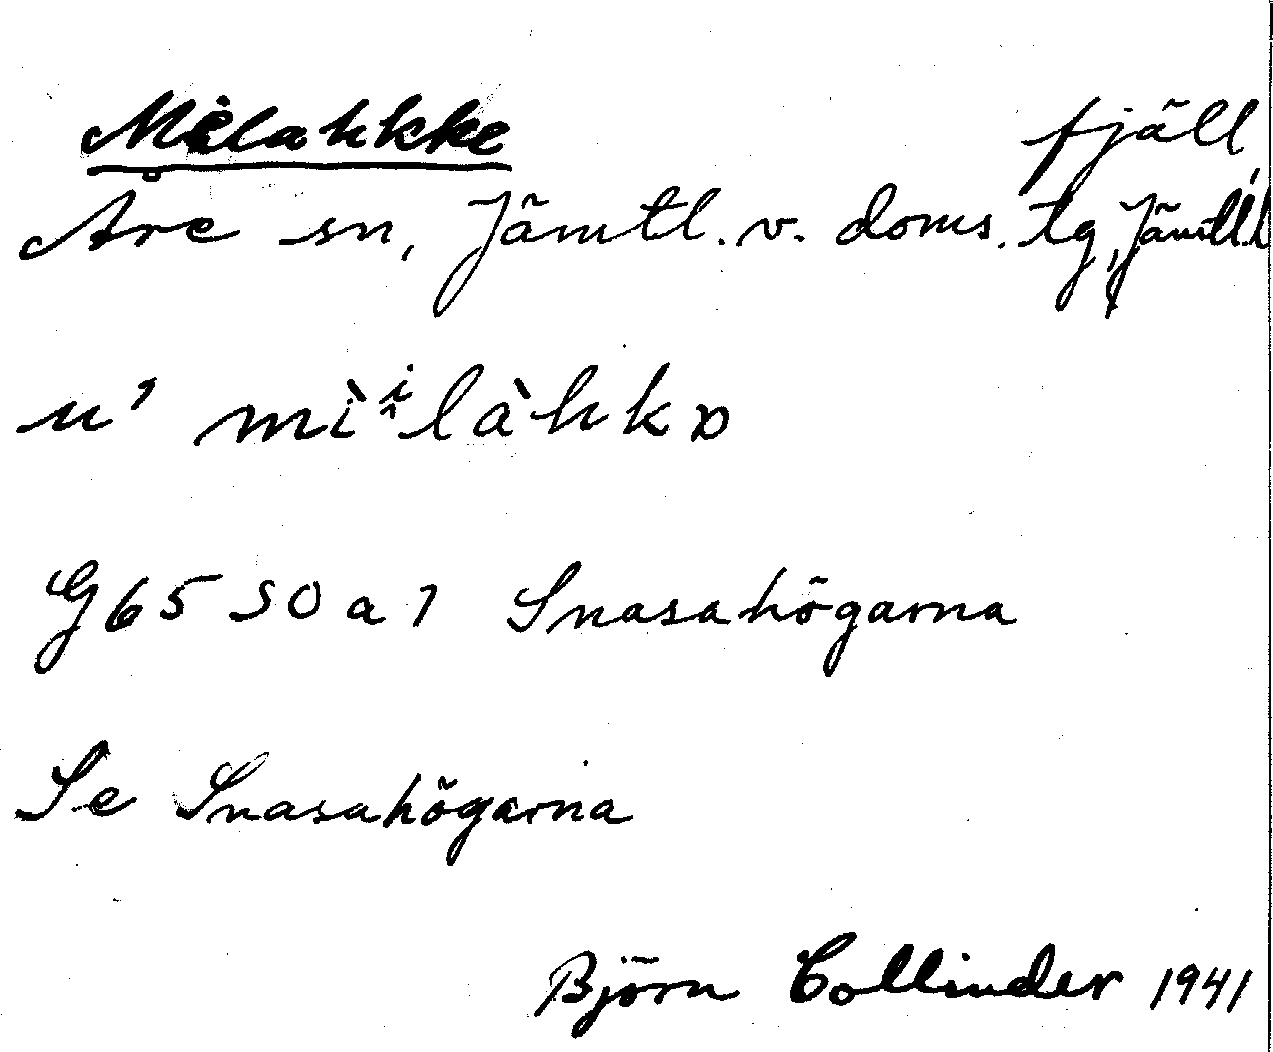 Mielahkke fjäll,
Åre sn, Jämtl. v. doms. tg, Jämtl. l
u' mìⁱlàhkɒ
G65 50 a 1 Snasahögarna
Se Snasahögarna
Björn Collinder 1941